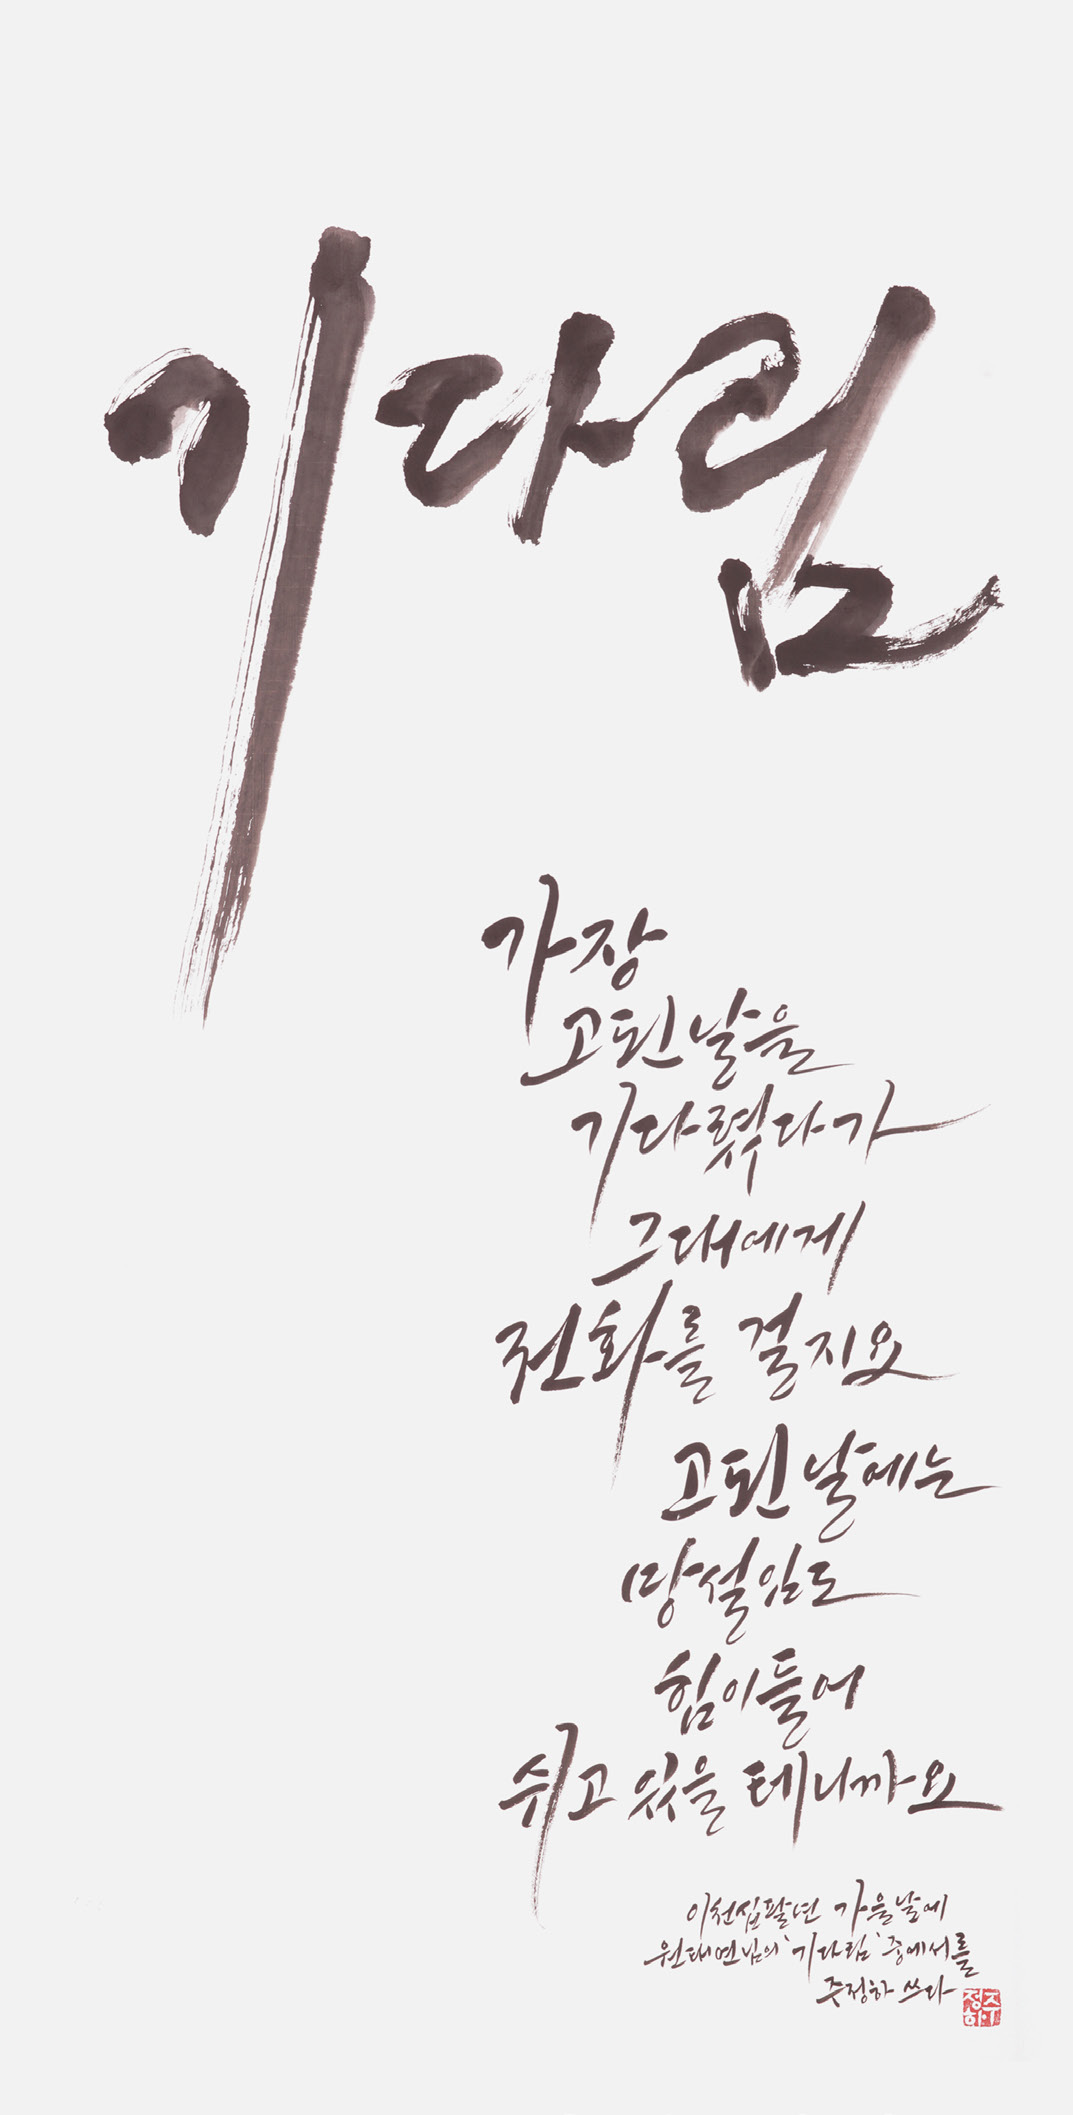 기다림
가장
고된 날을
기다렸다가
그대에게
전화를 걸지요
고된 날에는
망설임도
힘이 들어
쉬고 있을 테니까요
이천십팔년 가을날에
원태연님의 '기다림' 중에서를
주정하 쓰다
주정하